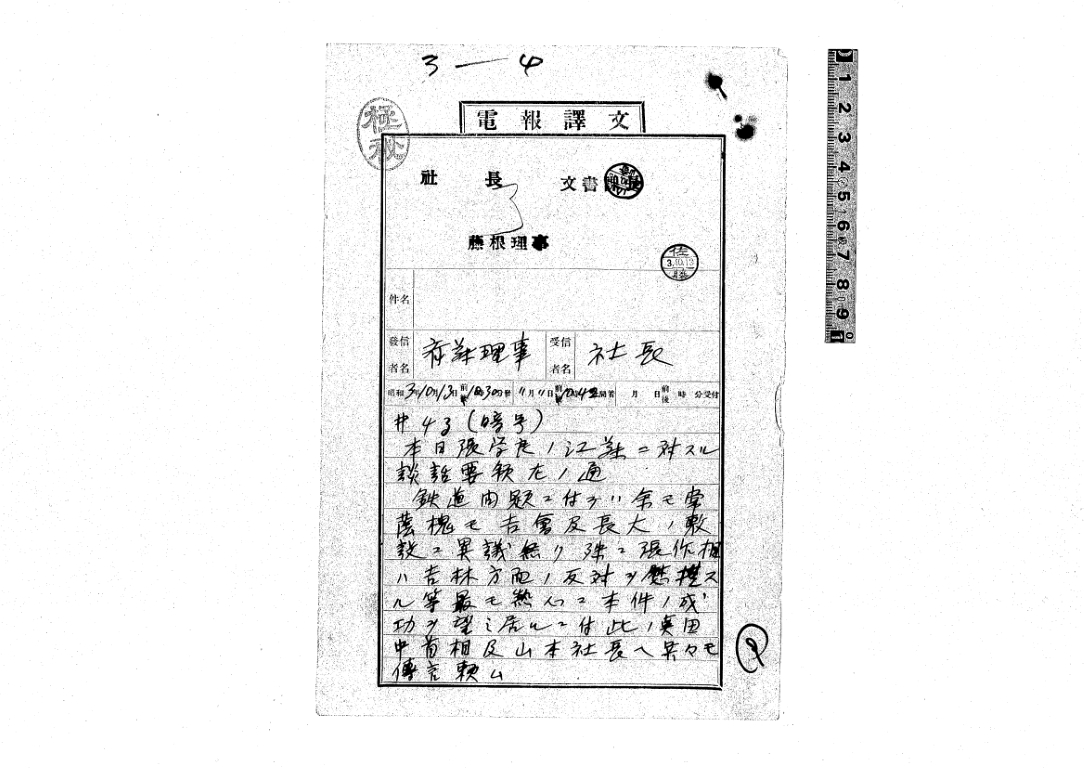 3 — 4
極秘
電報譯文
社長 文書課長
藤根理事
3.10.13
件名
發信者名 斎藤理事 受信者名 社長
昭和3年10月13日前後 時30分發 月 日前後 時 分着 月 日前後 時 分受付
#43(暗号)
本日張学良ノ江藤ニ対スル
談話要領左ノ通
鉄道問題ニ付テハ余モ常
蔭槐モ吉會及長大ノ敷
設ニ異議無ク殊ニ張作相
ハ吉林方面ノ反対ヲ鎮撫ス
ル等最モ熱心ニ本件ノ成
功ヲ望ミ居ルニ付此ノ点田
中首相及山本社長ヘ呉々モ
傳言頼ム